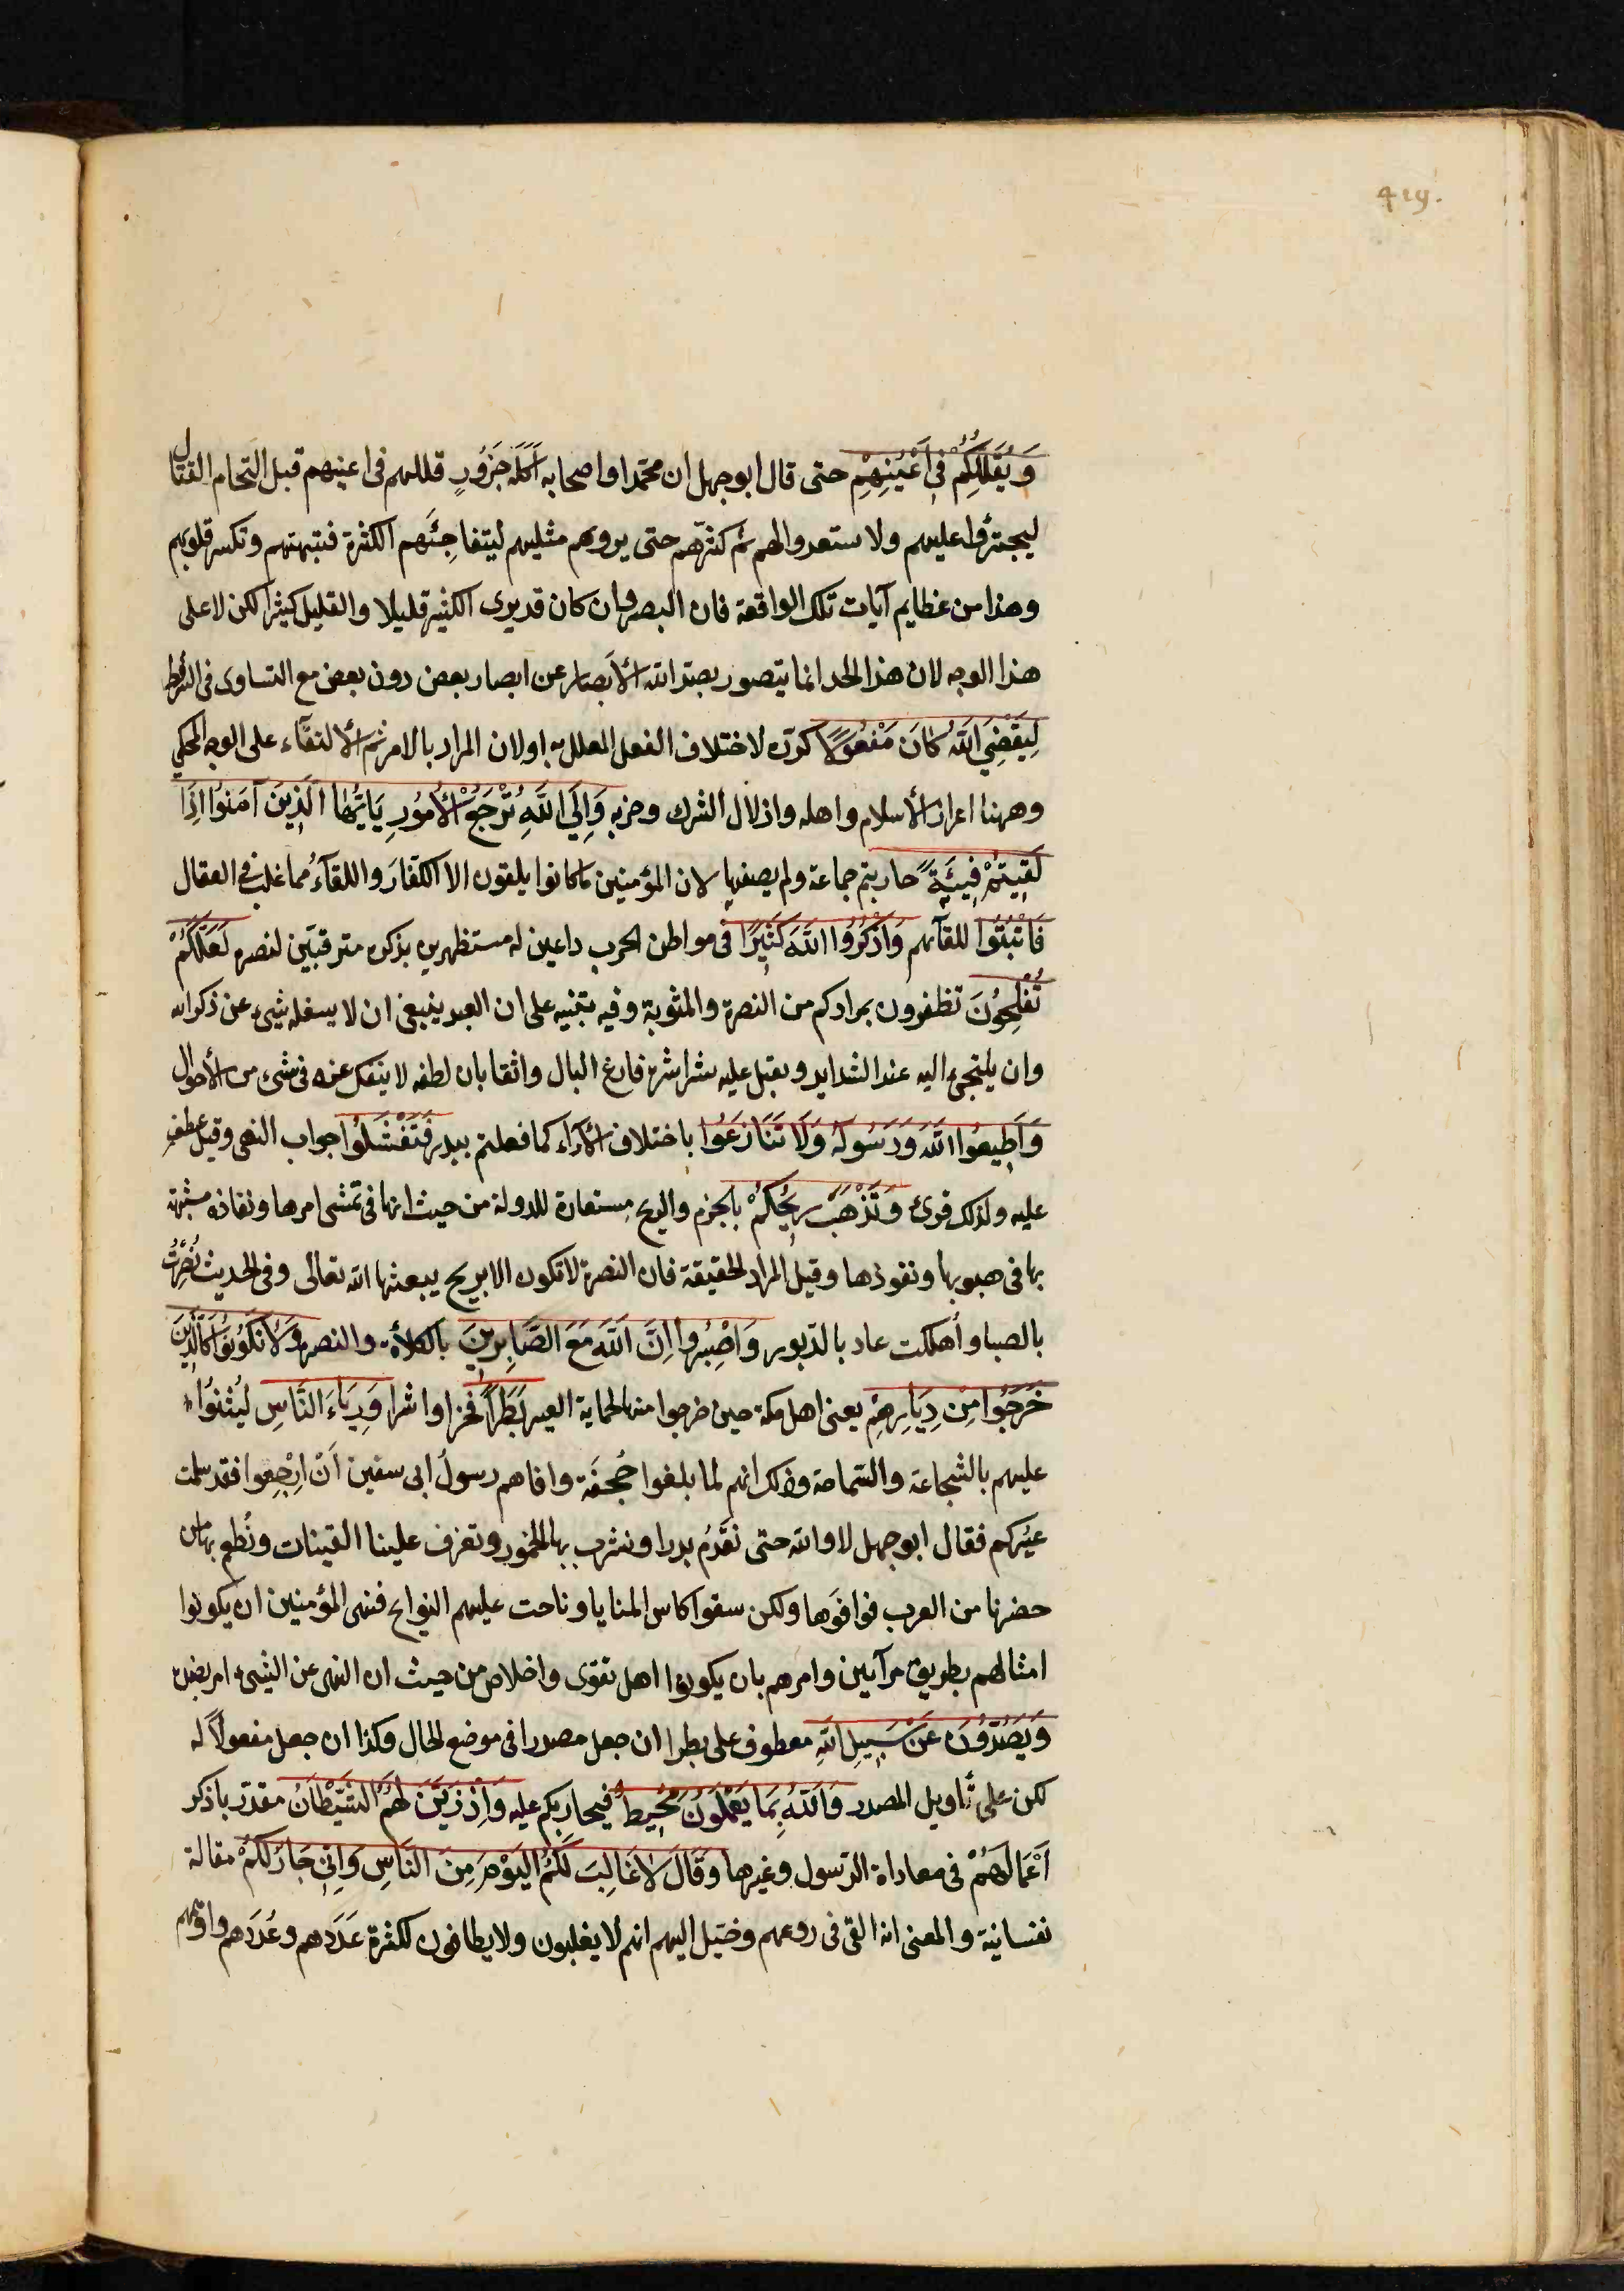 419.
وَيُقَلِّلُكُمْ فِي أَعْيُنِهِمْ حتى قال ابوجهل ان محمّدا واصحابه أَكَلَة جَزُورٍ قللهم فى اعينهم قبل التحام القتال
ليجترؤا عليهم ولا ستعدوالهم ثم كثرّهم حتى يرونهم مثليهم ليتفاجئَهم الكثرة فتبهتهم وتكسر قلوبهم
وهذا من عظايم آيات تلك الواقعة فان البصر وان كان قديرى الكثير قليلا والقليل كثيرا لكن لا على
هذا الوجه لان هذا الحد انما يتصور بصد الله الأبصار عن ابصار بعض دون بعض مع التساوى فى الشرائط
لِيَقْضِيَ اللَّهُ كَانَ مَفْعُولًا كرّره لاختلاف الفعل المعلل به اولان المراد بالامر ثم الألتقاء على الوجه المحكي
وههنا اعزاز الأسلام واهله واذلال الشرك وحزبه وَإِلَى اللَّهِ تُرْجَعُ الأُمُورِ يَاأَيُّهَا الَّذِينَ آمَنُوا إِذَا
لَقِيتُمْ فِيئَةً حاربتم جماعة ولم يصفها لان المؤمنين ما كانوا يلقون الا الكفارَ واللقآءُ مما غلب فى القتال
فَاثْبُتُوا للقآئهم وَاذْكُرُوا اللَّهَ كَثِيرًا فى مواطن الحرب داعين له مستظهرين بذكره مترقبّين لنصره لَعَلَّكُمْ
تُفْلِحُونَ تظفرون بمرادكم من النصرة والمثوبة وفيه تنبيه على ان العبد ينبغى ان لا يسغله شىء عن ذكرالله
وان يلتجىء اليه عند الشدايد ويقبل عليه بشراشره فارغ البال واثقا بان لطفه لا ينفك عنه فى شىء من الأحوال
وَأَطِيعُوا اللَّهَ وَرَسُولَهُ وَلَا تَنَازَعُوا باختلاف الآراء كما فعلتم ببدر فَتَفْشَلُوا جواب النهى وقيل عطف
عليه ولذلك قرئ وَتَذْهَبْ رِيحُكُمْ بالجزم والريح مستعارة للدولة من حيث انها فى تمشى امرها ونفاذه مشبهة
بها فى هبوبها ونفوذها وقيل المراد الحقيقة فان النصرة لا تكون الا بريح يبعثها الله تعالى وفى الحديث نُصِرْتُ
بالصبا وأُهلكت عاد بالدّبور وَاصْبِرُوا إِنَّ اللَّهَ مَعَ الصَّابِرِينَ بالكلأة والنصرة وَلَا تَكُونُوا كَالَّذِينَ
خَرَجُوا مِنْ دِيَارِهِمْ يعنى اهل مكة حين خرجوا منها لحماية العير بَطَرًا فخرا واشرا وَرِيَاءَ النَّاسِ لِيُثنُوا
عليهم بالشجاعة والسّماحة وذلك انهم لما بلغوا جُحفَة وافاهم رسولُ ابى سفين أَنْ ارْجِعوا فقد سلمت
عيركم فقال ابوجهل لا والله حتى نَقدُم بدرا ونشرب بها الخمور وتعزف علينا القينات ونُطعم بها من
حضرنا من العرب فوافَوها ولكن سقوا كاس المنايا وناحت عليهم النوايح فنهى المؤمنين ان يكونوا
امثالهم بطرين مرآيين وامرهم بان يكونوا اهل تقوى واخلاص من حيث ان النهى عن الشىء امر بضده
وَيَصُدُّونَ عَنْ سَبِيلِ اللَّهِ معطوف على بطرا ان جعل مصدرا فى موضع الحال وكذا ان جعل مفعولاً له
لكن على تأويل المصدر وَاللَّهُ بِمَا يَعْمَلُونَ مُحِيطٌ فيجاريكم عليه وَإِذْ زَيَّنَ لَهُمُ الشَّيْطَانُ مقدّر باذكر
أَعْمَالَهُمْ فى معاداة الرّسول وغيرها وَقَالَ لَا غَالِبَ لَكُمُ الْيَوْمَ مِنَ النَّاسِ وَإِنِّي جَارٌ لَكُمْ مقالة
نفسانيّة والمعنى انه القى فى روعهم وخيّل اليهم انهم لا يغلبون ولا يطاقون لكثرة عَدَدهم وعُدَدهم واوهمهم